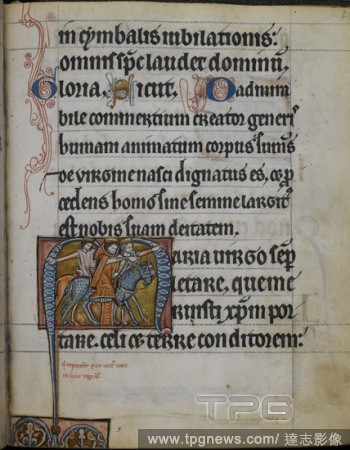 in cymbalis iubilationis:
omnis sp̄c laudet dominū.
Gloria. Sicut. O admira
bile commertium creator gener᾽
humani animatum corpus sumēs
de virgine nasci dignatus es, & p̄
cedens homo sine semine largit᾽
est nobis suam deitatem.
Maria virgo sēp
letare, que me
ruisti xp̄m por
tare. celi & terre conditorem:
TPG
www.tpgnews.com / 達志影像